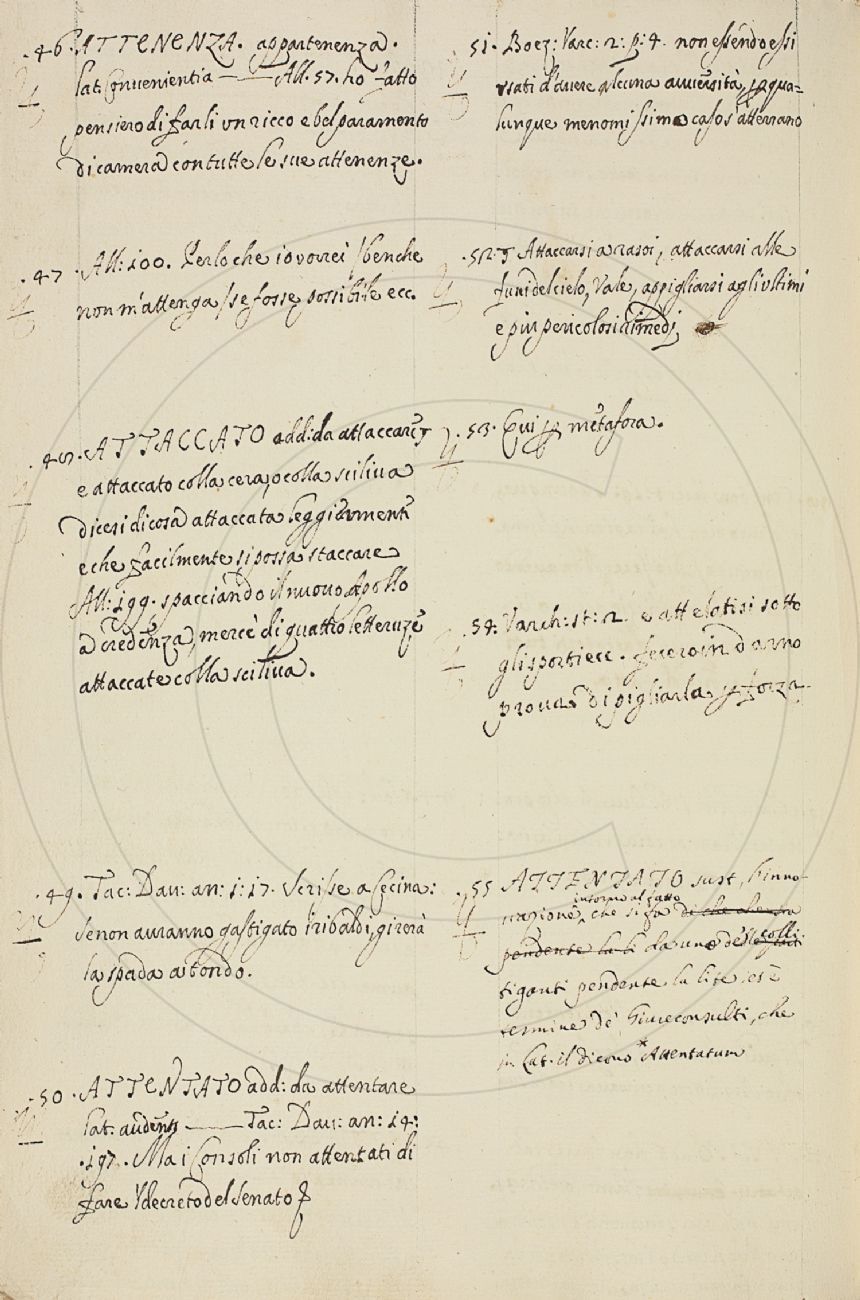 .46. ATTENENZA. appartenenza.
Lat. Convenientia —— All. 57. ho fatto
pensiero di farli un ricco e bel paramento
di camera con tutte le sue attenenze.
.47. All: 100. Perloche io vorrei /benche
non m'attenga/ se fosse possibile ecc.
.48. ATTACCATO add: da attaccare
e attaccato colla cera, o colla sciliva
dicesi di cosa attaccata leggierment
e che facilmente si possa staccare
All: 199. spacciando il nuovo Apollo
a credenza, mercè di quattro letteruze
attaccate colla sciliva.
.49. Tac: Dav: an: 1: 17. Scrisse a Cecina:
Se non avranno gastigato i ribaldi, girerà
la spada a tondo.
.50. ATTENTATO add: da attentare
Lat: audens —— Tac: Dav: an: 14:
.197. Ma i Consoli non attentati di
fare 'l decreto del Senato
51. Boez: Varc: 2: p: 4. non essendo essi
usati d'avere alcuna avversità, p qua=
lunque menomissimo caso s'atterrano
.52. Attaccarsi a rasoi, attaccarsi alle
funi del cielo, Vale, appigliarsi agli ultimi
e piu pericolosi rimedj.
.53. Qui p metafora.
.54. Varch: st: 2. e attelatisi sotto
gli sportiecc. fecero in darno
prova di pigliarla p forza
.55 ATTENTATO sust, Innno-
vazione, intorno al fatto che si fa di che che sia
pendente la li da uno delle colli-
tiganti pendente la lite. es è
termine de' Giureconsulti, che
in Lat. il dicono Attentatum